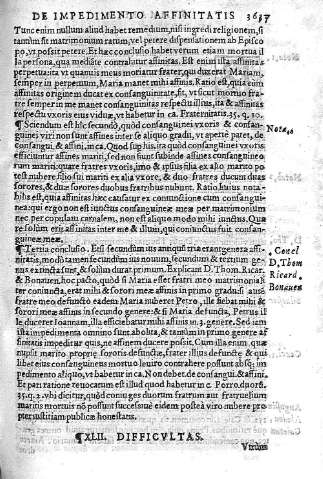 DE IMPEDIMENTO AFFINITATIS
Tunc enim nullum aliud habet remedium, nisi ingredi religionem, si
tantum sit matrimonium ratum, vel petere dispensationem ab Episco
po, vt possit petere. Et hæc conclusio habet verum etiam mortua il
la persona, qua mediāte contrahitur affinitas. Est enim illa affinitas
perpetua ita vt quamuis meus moriatur frater, qui duxerat Mariam,
semper in perpetuum, Maria manet mihi affinis. Ratio est, quia cum
affinitas origine ducatur ex consanguinitate, sit, vt sicut mortuo fra
tre semper in me manet consanguinitas respectu illius, ita & affinitas
respectu vxoris eius viduæ, vt habetur in ca. Fraternitatis. 35. q. 10.
¶ Sciendum est hîc secundò, quòd consanguinei vxoris & consan-
guinei viri non sunt affines inter se aliquo gradu, vt apertè patet, de
consangui. & affini. in ca. Quod super his, ita quòd consanguinei vxoris
efficiuntur affines mariti, sed non sunt inde affines consanguineo
rum mariti, quare fratres vxoris, imò & ipsius filia ex alio marito po
test nubere filio sui mariti ex alia vxore, & duo fratres ducunt duas
sorores, & duæ sorores duobus fratribus nubunt. Ratio huius nota-
bilis est, quia affinitas hæc causatur ex coniunctione cum consangui-
nea: qui ergo non est iunctus consanguineæ meæ per matrimonium
nec per copulam carnalem, non est aliquo modo mihi iunctus. Qua
re solùm erit affinitas inter me & illum, qui coniunctus fuit consan-
guineæ meæ.
Nota,
¶ Tertia conclusio. Etsi secundùm ius antiquū tria erant genera affi-
nitatis, modò tamen secundùm ius nouum, secundum & tertium ge-
nus extincta sunt, & solùm durat primum. Explicant D. Thom. Ricar.
& Bonauen. hoc pacto, quòd si Maria esset fratri meo matrimonia li
ter coniuncta, erat mihi & sorori meæ affinis in primo gradu: at si
fratre meo defuncto eadem Maria nuberet Petro, ille fiebat mihi &
sorori meæ affinis in secundo genere: & si Maria defuncta, Petrus il
le duceret Ioannam, illa efficiebatur mihi affinis in 3. genere. Sed iam
ista impedimenta omnino sunt abolita, & tantùm in primo genere af
finitatis impeditur quis, ne affinem ducere possit. Cum illa enim quæ
nupsit marito propriæ sororis defunctæ, frater illius defunctæ & qui
libet eius consanguineus de nuptu leuiro contrahere possunt absque im-
pedimento aliquo, vt habetur in ca. Non debet. de consangui. & affini.
Et pari ratione reuocatum est illud quod habetur in c. Porro. duorū.
35. q. 2. vbi dicitur, quòd coniuges duorum fratrum aut fratruelium
maritis mortuis nō possunt successiuè eidem postea viro nubere pro
pter iustitiam publicæ honestatis.
Concl
D. Thom
Ricard.
Bonauen
¶XLII. DIFFICVLTAS.
Vtrum